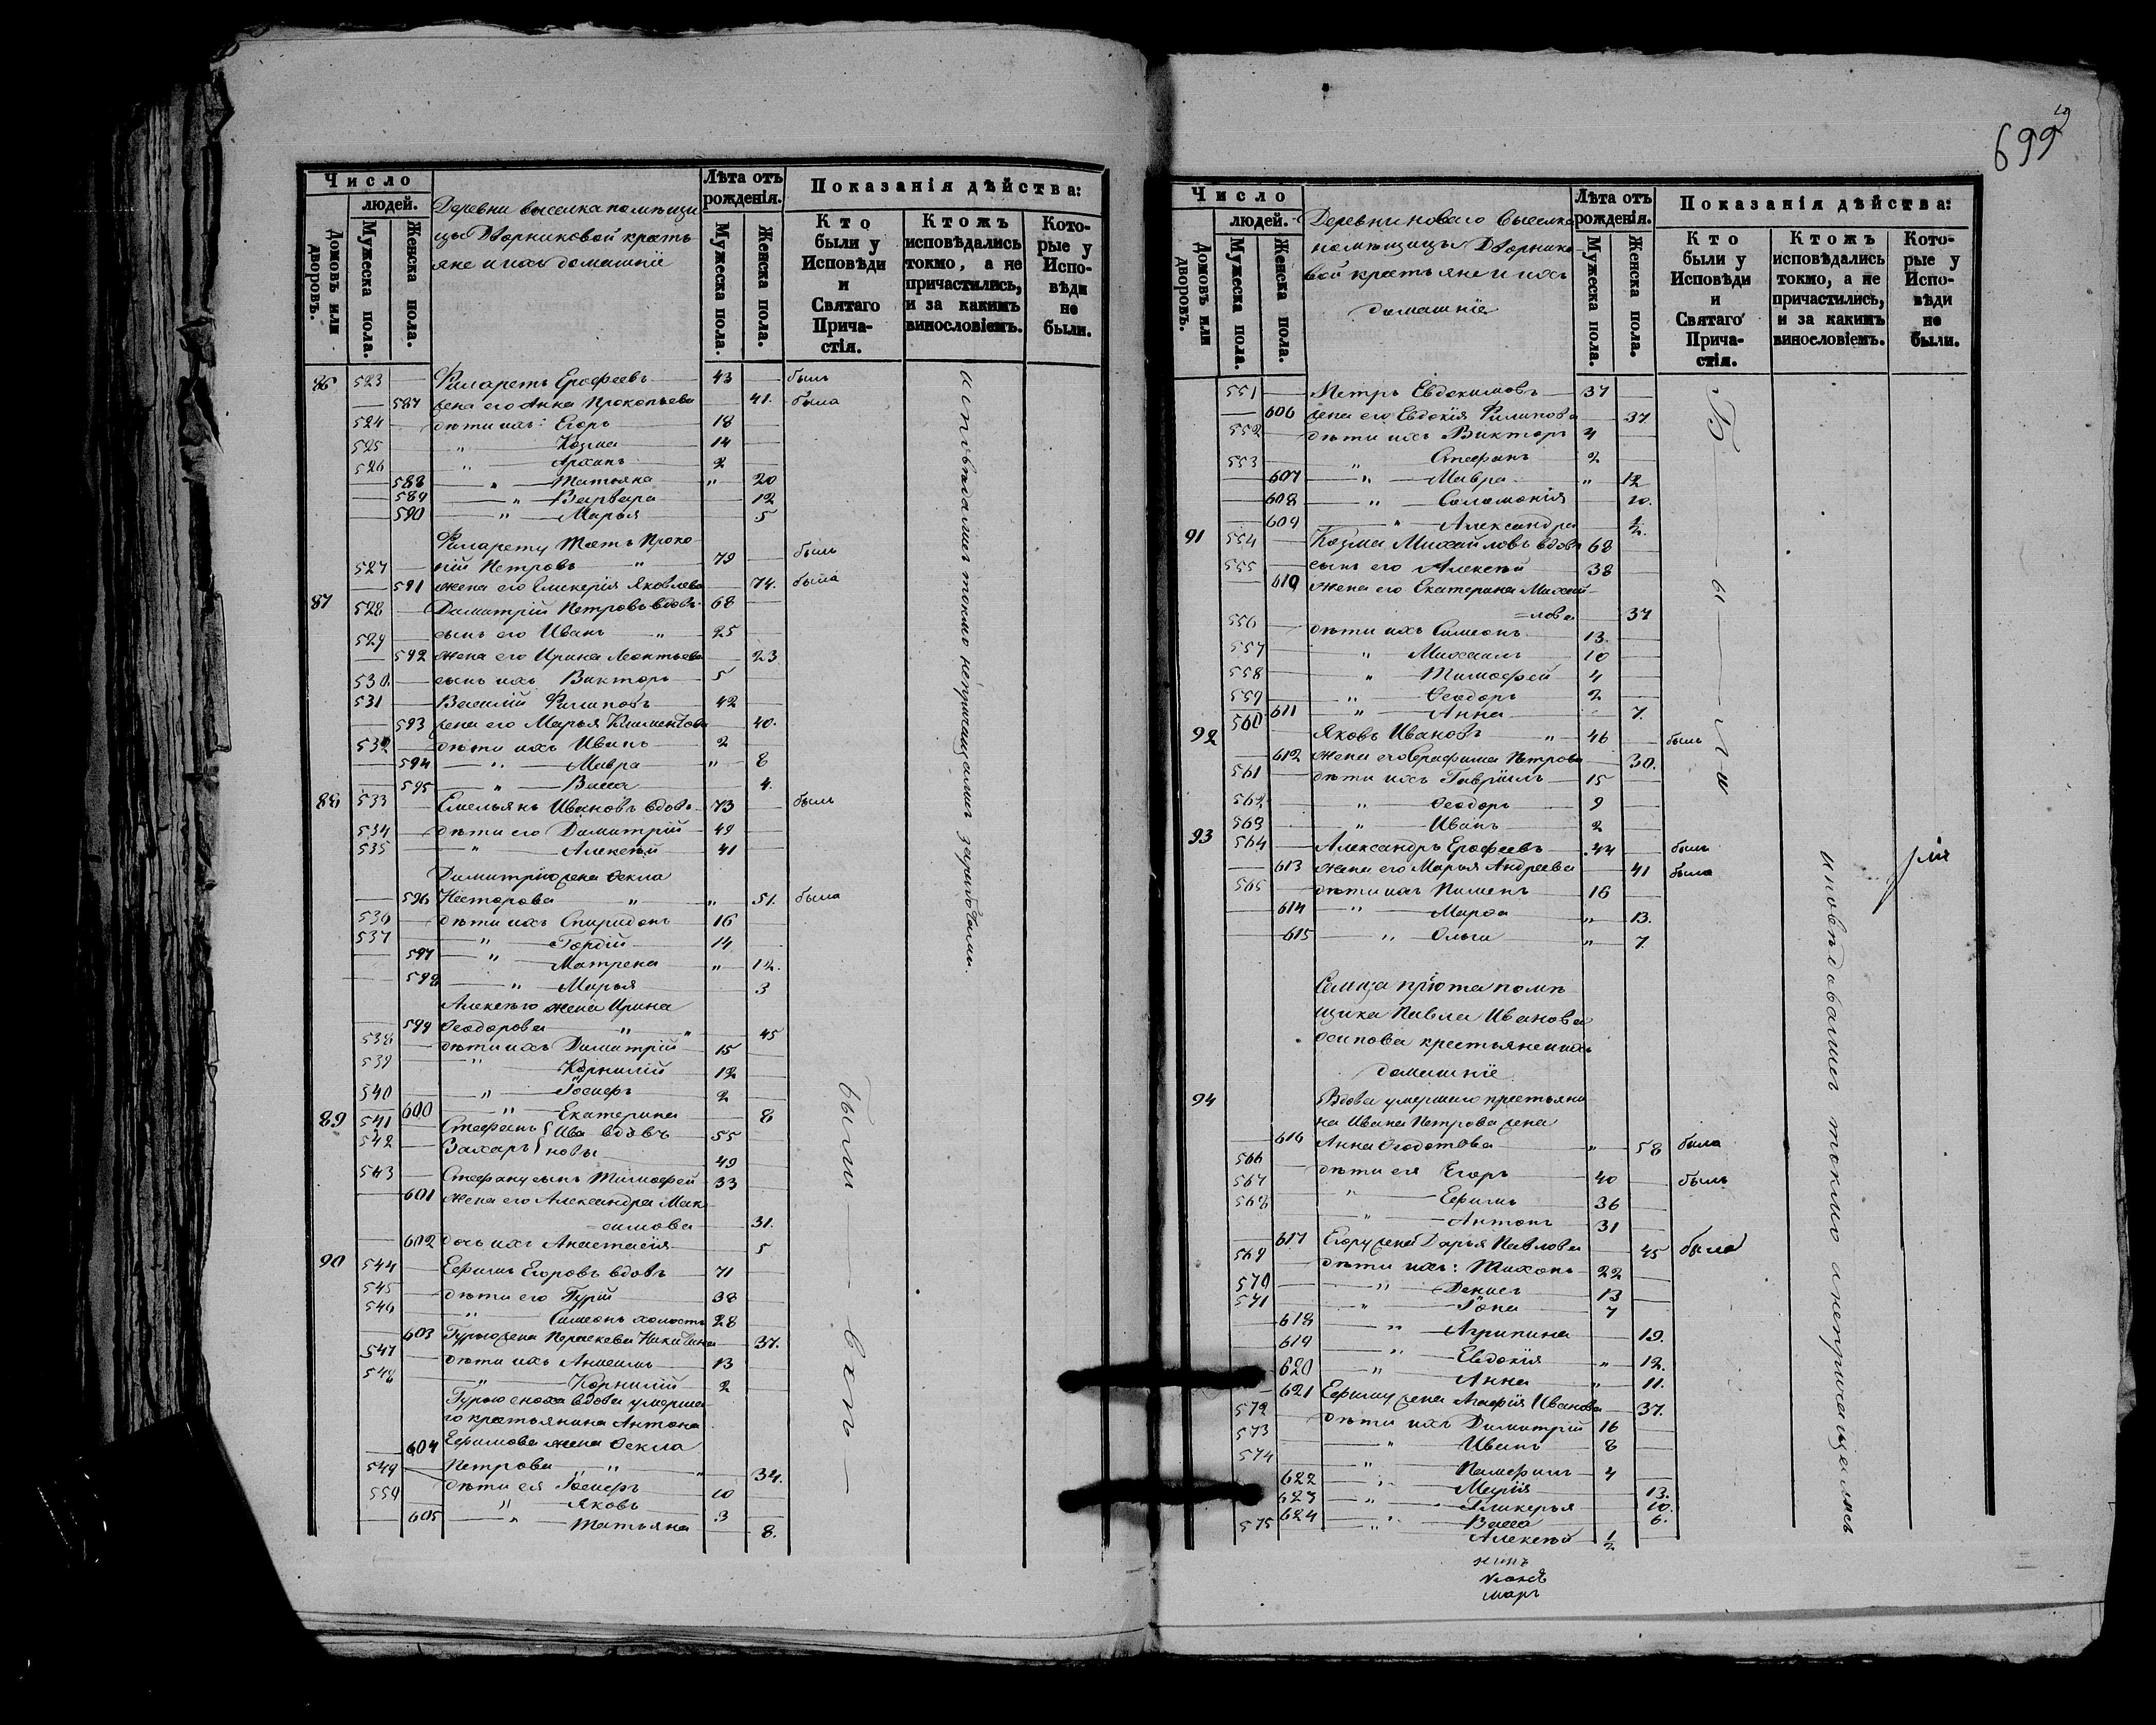 699
Число
людей.
Домовъ или дворовъ.
Мужеска пола.
Женска пола.
Деревни выселка помѣщи
цы Дворниковой кресть
яне и ихъ домашніе
Лѣта отъ рожденія.
Мужеска пола.
Женска пола.
Показанія дѣйства:
Кто были у Исповѣди и Святаго Причастія.
Ктожъ исповѣдались токмо, а не причастились, и за какимъ винословіемъ.
Которые у Исповѣди не были.
86 523 Филаретъ Ерофеевъ 43 былъ
587 жена его Анна Прокопьева 41. была
524 дѣти ихъ: Егоръ 18
525 " Козма 14
526 " Архипъ 2
588 " Татьяна " 20
589 " Варвара 12
590 " Марья 5
Филарету тесть Проко
527 пій Петровъ " 79 былъ
591 жена его Гликерія Яковлева 74. была
87 528 Димитрій Петровъ вдовъ 68
529 сынъ его Иванъ " 25
592 жена его Ирина Леонтьева 23
530. сынъ ихъ Викторъ 5
531 Василій Филиповъ 42
593 жена его Марья Климентова 40.
532 дѣти ихъ Иванъ 2
594 " Мавра " 8
595 " Васса 4.
88 533 Емельянъ Ивановъ вдовъ 73 былъ
534 дѣти его Димитрій 49
535 " Алексѣй 41
Димитрію жена Ѳекла
596 Несторова " " 51. была
536 дѣти ихъ Спиридонъ 16
537 " Гордій 14
597 " Матрена " 12.
598 " Марья 3
Алексѣю жена Ирина
599 Ѳеодорова " " 45
538 дѣти ихъ Димитрій 15
539 " Корнилій 12
540 " Іосифъ 2
600 " Екатерина 8
89 541 Стефанъ } Ива вдовъ 55
542 Захаръ } новы 49
543 Стефану сынъ Тимофей 33
601 жена его Александра Мак
симова 31.
602 дочь ихъ Анастасія 5
90 544 Ефимъ Егоровъ вдовъ 71
545 дѣти его Гурій 38
546 " Симеонъ холостъ 28
603 Гурію жена Параскева Никитина 37.
547 дѣти ихъ Анисимъ 13
548 " Корнилій 2
Гурію сноха вдова умерша
го крестьянина Антона
604 Ефимова жена Ѳекла
Петрова " " 34.
549 дѣти ея Іосифъ 10
550 " Яковъ 3
605 " Татьяна 8.
исповѣдались токмо непричащались за раз
Были
Число
людей.
Домовъ или дворовъ.
Мужеска пола.
Женска пола.
Деревни новаго выселка
помѣщицы Дворнико
вой крестьяне и ихъ
домашніе
Лѣта отъ рожденія.
Мужеска пола.
Женска пола.
Показанія дѣйства:
Кто были у Исповѣди и Святаго Причастія.
Ктожъ исповѣдались токмо, а не причастились, и за какимъ винословіемъ.
Которые у Исповѣди не были.
551 Петръ Евдокимовъ 37
606 жена его Евдокія Филипова 37
552 дѣти ихъ Викторъ 4
553 " Стефанъ 2
607 " Мавра " 12
608 " Соломонія 10.
609 " Александра 1/2.
91 554 Козма Михайловъ вдовъ 68
555 сынъ его Алексѣй 38
610 жена его Екатерина Михай
лова 37
556 дѣти ихъ Симеонъ 13.
557 " Михаилъ 10
558 " Тимофей 4
559 " Ѳеодоръ 2
611 " Анна 7.
92 560 Яковъ Ивановъ " 46 былъ
612 жена его Серафима Петрова 30.
561 дѣти ихъ Гавріилъ 15
562 " Ѳеодоръ 9
563 " Иванъ 2
93 564 Александръ Ерофеевъ 44 былъ
613 жена его Марья Андреева 41 была
565 дѣти ихъ Пименъ 16
614 " Марѳа " 13.
615 " Ольга " 7
Сельца прі помѣ
щика Павла Иванова
Осипова крестьяне и ихъ
домашніе
94 Вдова умершаго крестьяни
на Ивана Петрова жена
616 Анна Ѳеодотова " 58 была
566 дѣти ея Егоръ 40 былъ
567 " Ефимъ 36
568 " Антонъ 31
617 Егору жена Дарья Павлова 45 была
569 дѣти ихъ: Тихонъ 22
570 " Денисъ 13
571 " Іона 7
618 " Агрипина 19.
619 " Евдокія " 12.
620 " Анна " 11.
621 Ефиму жена Агафія Иванова 37.
572 дѣти ихъ Димитрій 16
573 " Иванъ 8
574 " Памфилъ 4
622 " Марія 13.
623 " Гликерья 10.
624 " Васса 6.
575 " Алексѣй 1/2
Были
исповѣдовались токмо а непричащались